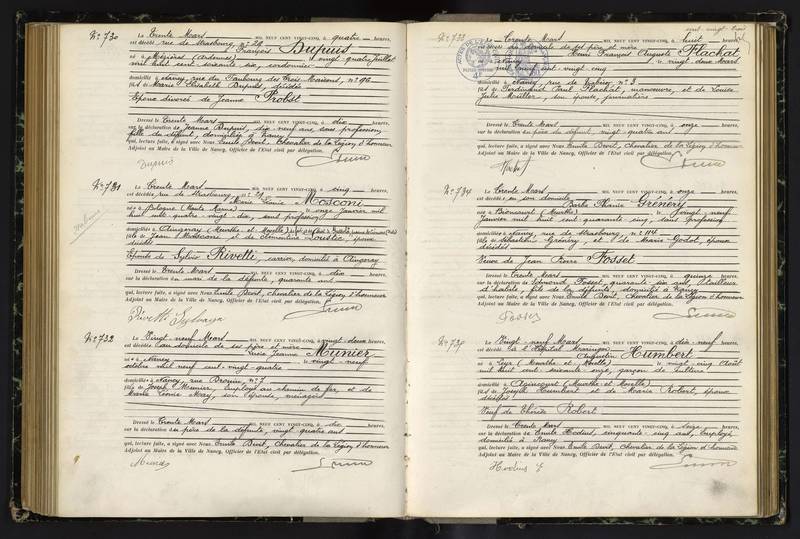 N° 730 Le Trente Mars mil neuf cent vingt-cinq, à quatre heures,
est décédé rue de Strasbourg, n° 29
François Dupuis
né à Mézières (Ardennes) le vingt quatre juillet
mil huit cent soixante six, cordonnier
domicilié à Nancy, rue du Faubourg des Trois Maisons, n° 96
fils de Marie Elisabeth Dupuis, décédée
Epoux divorcé de Jeanne Probst
Dressé le Trente Mars mil neuf cent vingt-cinq, à dix heures,
sur la déclaration de Jeanne Dupuis, dix-neuf ans, sans profession,
fille du défunt, domiciliée à Nancy
qui, lecture faite, a signé avec Nous Emile Bovit, Chevalier de la Légion d'honneur
Adjoint au Maire de la Ville de Nancy, Officier de l'Etat civil par délégation.
Dupuis
N° 731 Le Trente Mars mil neuf cent vingt-cinq, à cinq heures,
est décédée rue de Strasbourg, n°
Marie Louise Mosconi
née à Bologne (Haute Marne) le onze janvier mil
huit cent quatre-vingt-dix, sans profession
domiciliée à (Meurthe et Moselle)
fille de Jean Mosconi et de Clémentine époux
décédés
Epouse de Sylvio Rivetti, carrier, domicilié à
Dressé le Trente Mars mil neuf cent vingt-cinq, à dix heures,
sur la déclaration du mari de la défunte, quarante ans
qui, lecture faite, a signé avec Nous Emile Bovit, Chevalier de la Légion d'honneur
Adjoint au Maire de la Ville de Nancy, Officier de l'Etat civil par délégation.
N° 732 Le Vingt-neuf Mars mil neuf cent vingt-cinq, à vingt deux heures,
est décédée au domicile de ses père et mère
Lucie Jeanne Munier
née à Nancy le vingt-neuf
octobre mil neuf cent vingt-quatre
domiciliée à Nancy, rue Drouin, n° 7
fille de Joseph Munier, employé au chemin de fer, et de
Marie Louise May, son épouse, ménagère
Dressé le Trente Mars mil neuf cent vingt-cinq, à dix heures,
sur la déclaration du père de la défunte, vingt quatre ans
qui, lecture faite, a signé avec Nous Emile Bovit, Chevalier de la Légion d'honneur
Adjoint au Maire de la Ville de Nancy, Officier de l'Etat civil par délégation.
N° 733 Le Trente Mars mil neuf cent vingt-cinq, à huit heures,
est décédé au domicile de ses père et mère
Henri François Auguste Flachat
né à Nancy le vingt deux Mars
mil neuf cent vingt cinq
domicilié à Nancy, rue n° 3
fils de Ferdinand Paul Flachat, manœuvre, et de Louise
Julie Müller, son épouse, journalière
Dressé le Trente Mars mil neuf cent vingt-cinq, à onze heures,
sur la déclaration du père du défunt, vingt-quatre ans
qui, lecture faite, a signé avec Nous Emile Bovit, Chevalier de la Légion d'honneur
Adjoint au Maire de la Ville de Nancy, Officier de l'Etat civil par délégation.
N° 734 Le Trente Mars mil neuf cent vingt-cinq, à onze heures,
est décédée en son domicile
Barbe Marie Grénéry
née à Bioncourt (Meurthe) le vingt neuf
janvier mil huit cent quarante-cinq, sans profession
domiciliée à Nancy, rue de Strasbourg, n° 114
fille de Sébastien Grénéry, et de Marie Godot, époux
décédés
Veuve de Jean Pierre Fosset
Dressé le Trente Mars mil neuf cent vingt-cinq, à quinze heures,
sur la déclaration de Edmond Fosset, quarante-six ans, tailleur
d'habits, fils de la défunte, domicilié à Nancy
qui, lecture faite, a signé avec Nous Emile Bovit, Chevalier de la Légion d'honneur
Adjoint au Maire de la Ville de Nancy, Officier de l'Etat civil par délégation.
Fosset
N° 735 Le Vingt-neuf Mars mil neuf cent vingt-cinq, à dix-neuf heures,
est décédé à l'Hôpital Maringer
Augustin Humbert
né à Leyr (Meurthe et Moselle) le vingt-cinq Août
mil huit cent soixante-onze, garçon de culture
domicilié à Agincourt (Meurthe et Moselle)
fils de Joseph Humbert et de Marie Robert, époux
décédés
Veuf de Thérèse Robert
Dressé le Trente Mars mil neuf cent vingt-cinq, à seize heures,
sur la déclaration de Emile Hodius, cinquante-cinq ans, employé,
domicilié à Nancy
qui, lecture faite, a signé avec Nous Emile Bovit, Chevalier de la Légion d'honneur
Adjoint au Maire de la Ville de Nancy, Officier de l'Etat civil par délégation.
Hodius E